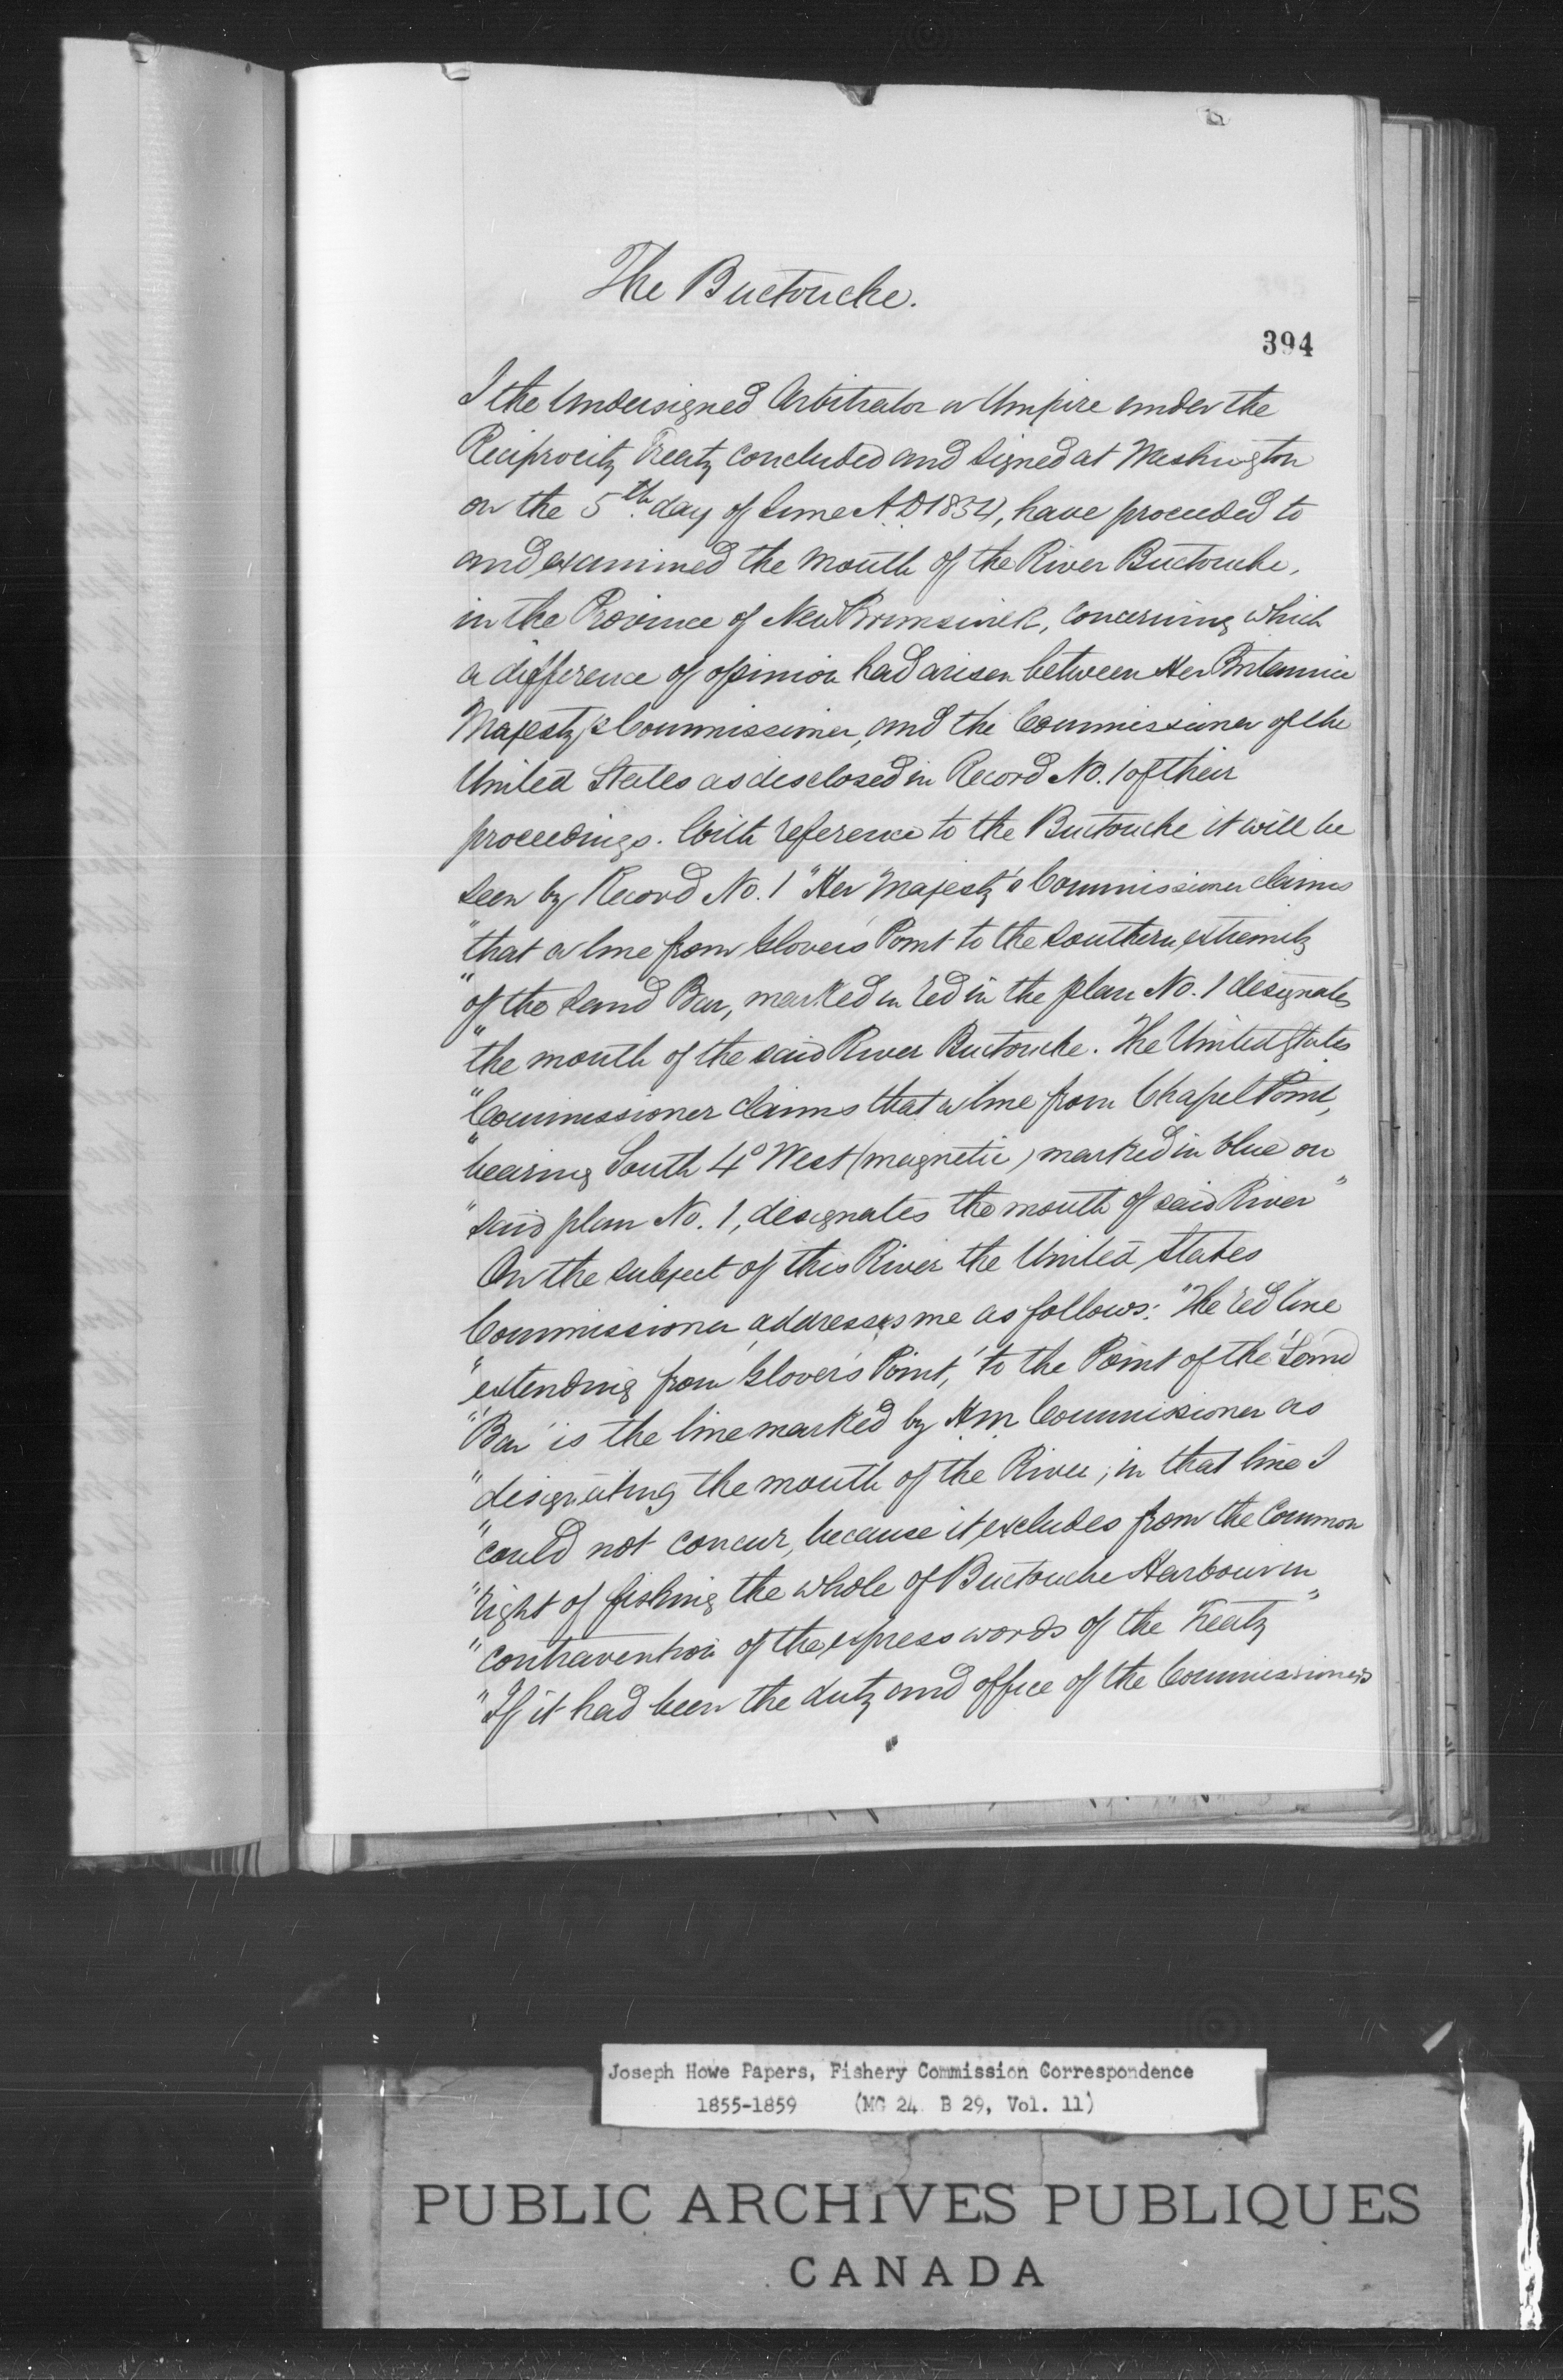 The Buctouche.
394
I the Undersigned Arbitrator or Umpire under the
Reciprocity Treaty concluded and signed at Washington
on the 5th day of June A.D 1854, have proceeded to
and examined the mouth of the River Buctouche,
in the Province of New Brunswick, concerning which
a difference of opinion had arisen between Her Britannic
Majesty's Commissioner, and the Commissioner of the
United States as disclosed in Record No. 1 of their
proceedings. With reference to the Buctouche it will be
seen by Record No. 1 "Her Majesty's Commissioner claims
"that a line from Glover's Point to the southern extremity
"of the Sand Bar, marked in red in the plan No. 1 designates
"the mouth of the said River Buctouche. The United States
"Commissioner claims that a line from Chapel Point,
"bearing South 4° West (magnetic) marked in blue on
"said plan No. 1, designates the mouth of said River"
On the subject of this River the United States
Commissioner addresses me as follows: "The red line
"extending from 'Glover's Point,' to the Point of the 'Sand
"Bar' is the line marked by H M Commissioner as
"designating the mouth of the River; in that line I
"could not concur, because it excludes from the common
"right of fishing the whole of Buctouche Harbour in
"contravention of the express words of the Treaty"
"If it had been the duty and office of the Commissioners
Joseph Howe Papers, Fishery Commission Correspondence
1855-1859 (MG 24 B 29, Vol. 11)
PUBLIC ARCHIVES PUBLIQUES
CANADA